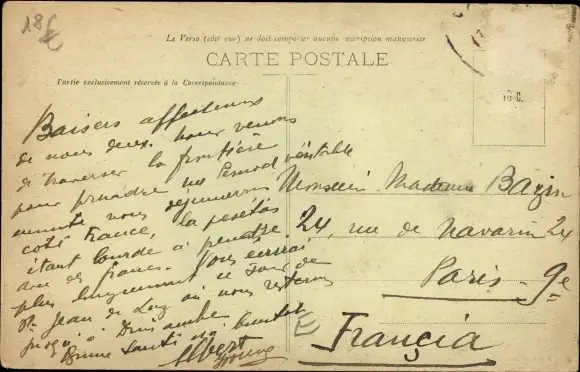 18 E
Le Verso (côté vue) ne doit comporter aucune inscription manuscrite
CARTE POSTALE
Partie exclusivement réservée à la Correspondance
10 c.
Baisers affectueux
de nous deux. Nous venons
de traverser la frontière
pour prendre un Pernod véritable
ensuite nous déjeunerons
côté France, la pesetas
étant lourde à prendre
avec des francs. Vous écrirai
plus longuement ce soir de
St Jean de Luz où nous restons
jusqu'à Dimanche
Bonne Santé bientôt
Albert
Monsieur Madame Bazin
24, rue de Navarin 24
Paris - 9e
E Francia